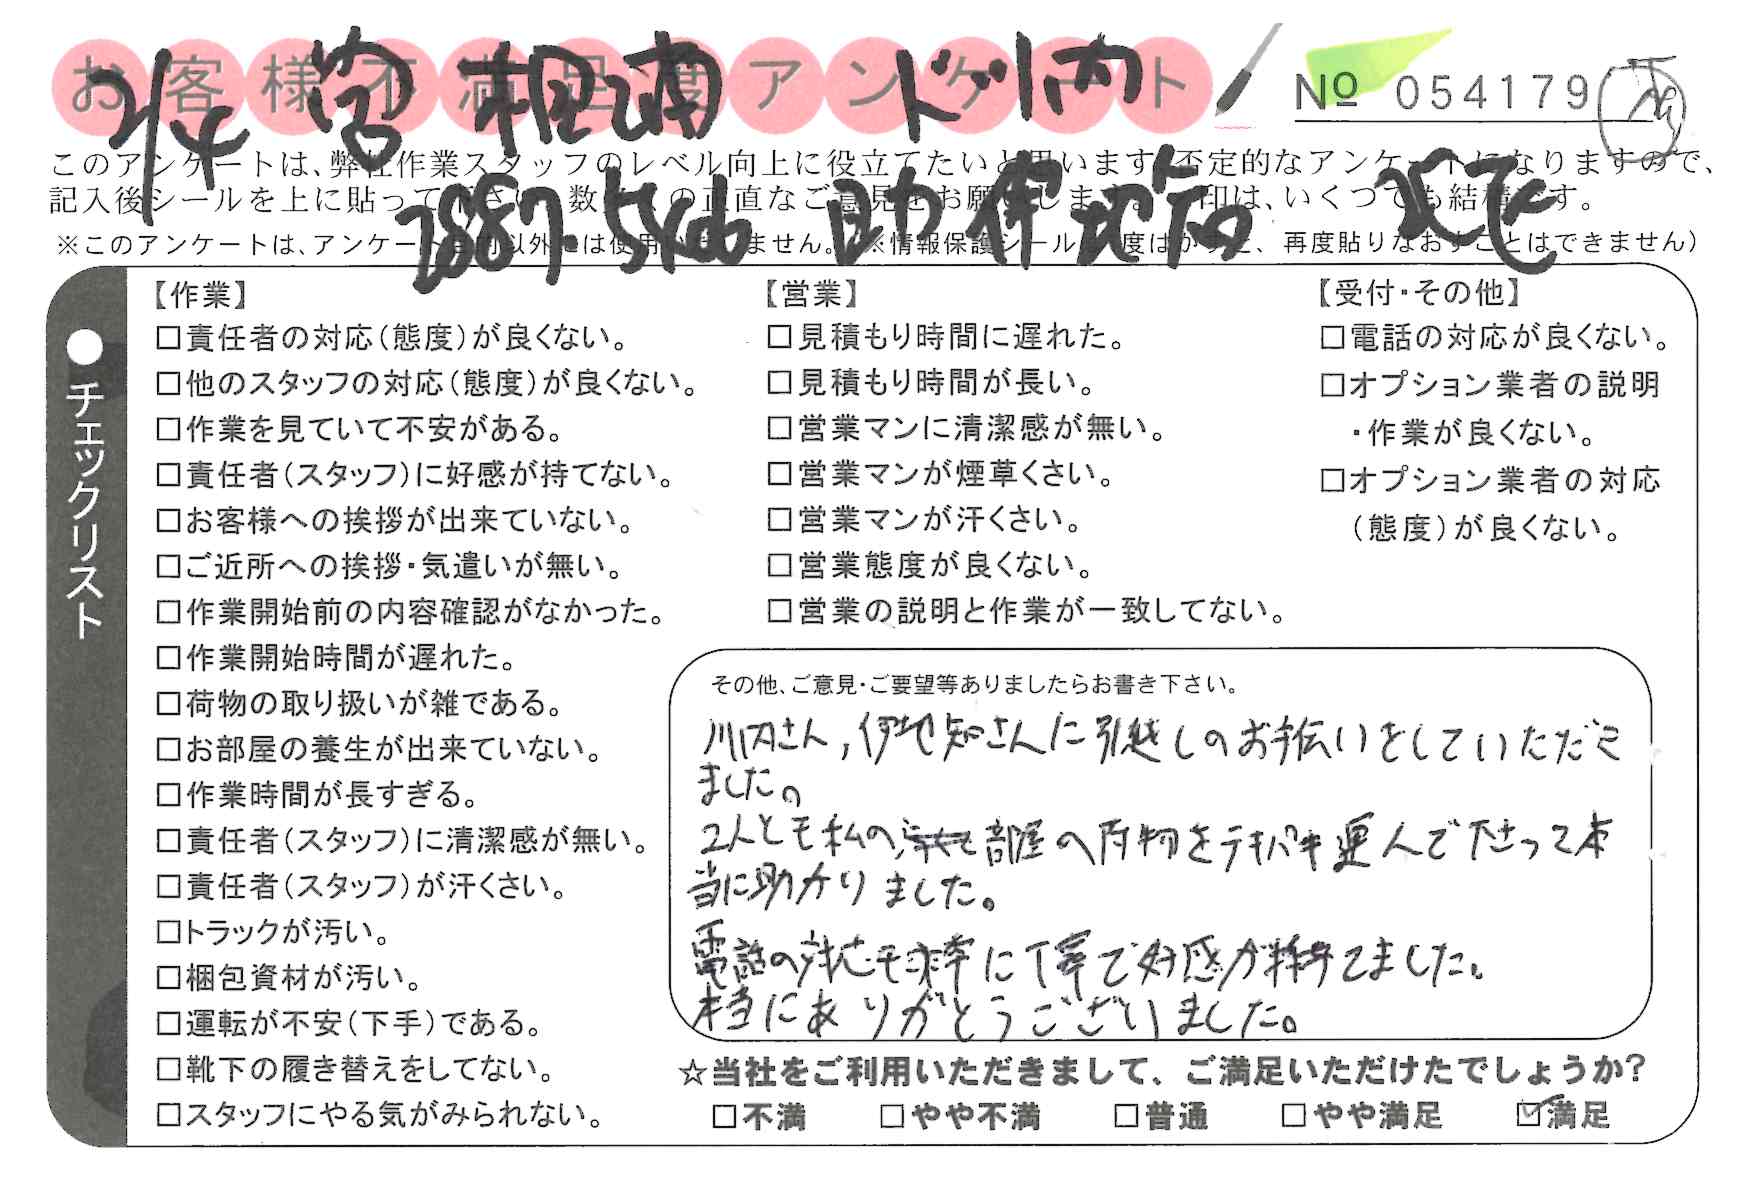 お客様不満足度アンケート
№ 054179
2/4 営 相南 ド 川内
このアンケートは、弊社作業スタッフのレベル向上に役立てたいと思います。否定的なアンケートになりますので、
記入後シールを上に貼って下さい。数 の正直なご意見をお願いします。 印は、いくつでも結構です。
2887 助 伊地知
※このアンケートは、アンケート目的以外には使用いたしません。 ※情報保護シールは 度はがすと、再度貼りなおすことはできません)
●チェックリスト
【作業】
□責任者の対応(態度)が良くない。
□他のスタッフの対応(態度)が良くない。
□作業を見ていて不安がある。
□責任者(スタッフ)に好感が持てない。
□お客様への挨拶が出来ていない。
□ご近所への挨拶・気遣いが無い。
□作業開始前の内容確認がなかった。
□作業開始時間が遅れた。
□荷物の取り扱いが雑である。
□お部屋の養生が出来ていない。
□作業時間が長すぎる。
□責任者(スタッフ)に清潔感が無い。
□責任者(スタッフ)が汗くさい。
□トラックが汚い。
□梱包資材が汚い。
□運転が不安(下手)である。
□靴下の履き替えをしてない。
□スタッフにやる気がみられない。
【営業】
□見積もり時間に遅れた。
□見積もり時間が長い。
□営業マンに清潔感が無い。
□営業マンが煙草くさい。
□営業マンが汗くさい。
□営業態度が良くない。
□営業の説明と作業が一致してない。
【受付・その他】
□電話の対応が良くない。
□オプション業者の説明
・作業が良くない。
□オプション業者の対応
(態度)が良くない。
その他、ご意見・ご要望等ありましたらお書き下さい。
川内さん,伊地知さんに引越しのお手伝いをしていただき
ました。
2人とも私の 部屋へ荷物をテキパキ運んで下さって本
当に助かりました。
電話の対応も非常に丁寧で好感が持てました。
本当にありがとうございました。
☆当社をご利用いただきまして、ご満足いただけたでしょうか?
□不満 □やや不満 □普通 □やや満足 ☑満足